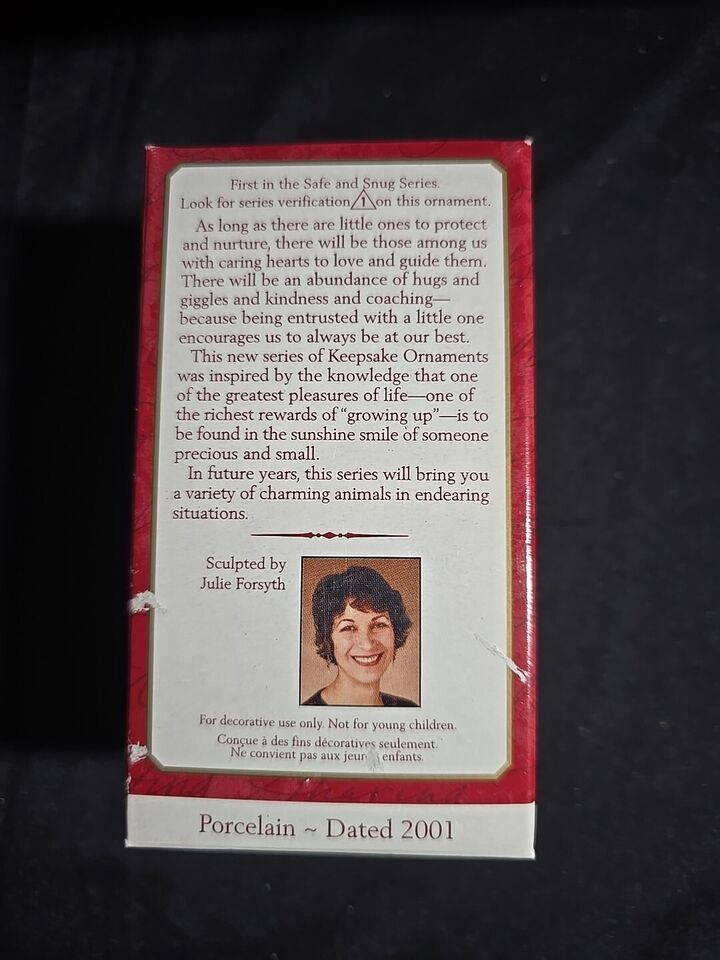 First in the Safe and Snug Series.
Look for series verification 1 on this ornament.
As long as there are little ones to protect
and nurture, there will be those among us
with caring hearts to love and guide them.
There will be an abundance of hugs and
giggles and kindness and coaching—
because being entrusted with a little one
encourages us to always be at our best.
This new series of Keepsake Ornaments
was inspired by the knowledge that one
of the greatest pleasures of life—one of
the richest rewards of “growing up”—is to
be found in the sunshine smile of someone
precious and small.
In future years, this series will bring you
a variety of charming animals in endearing
situations.
Sculpted by
Julie Forsyth
For decorative use only. Not for young children.
Conçue à des fins décoratives seulement.
Ne convient pas aux jeun enfants.
Porcelain ~ Dated 2001